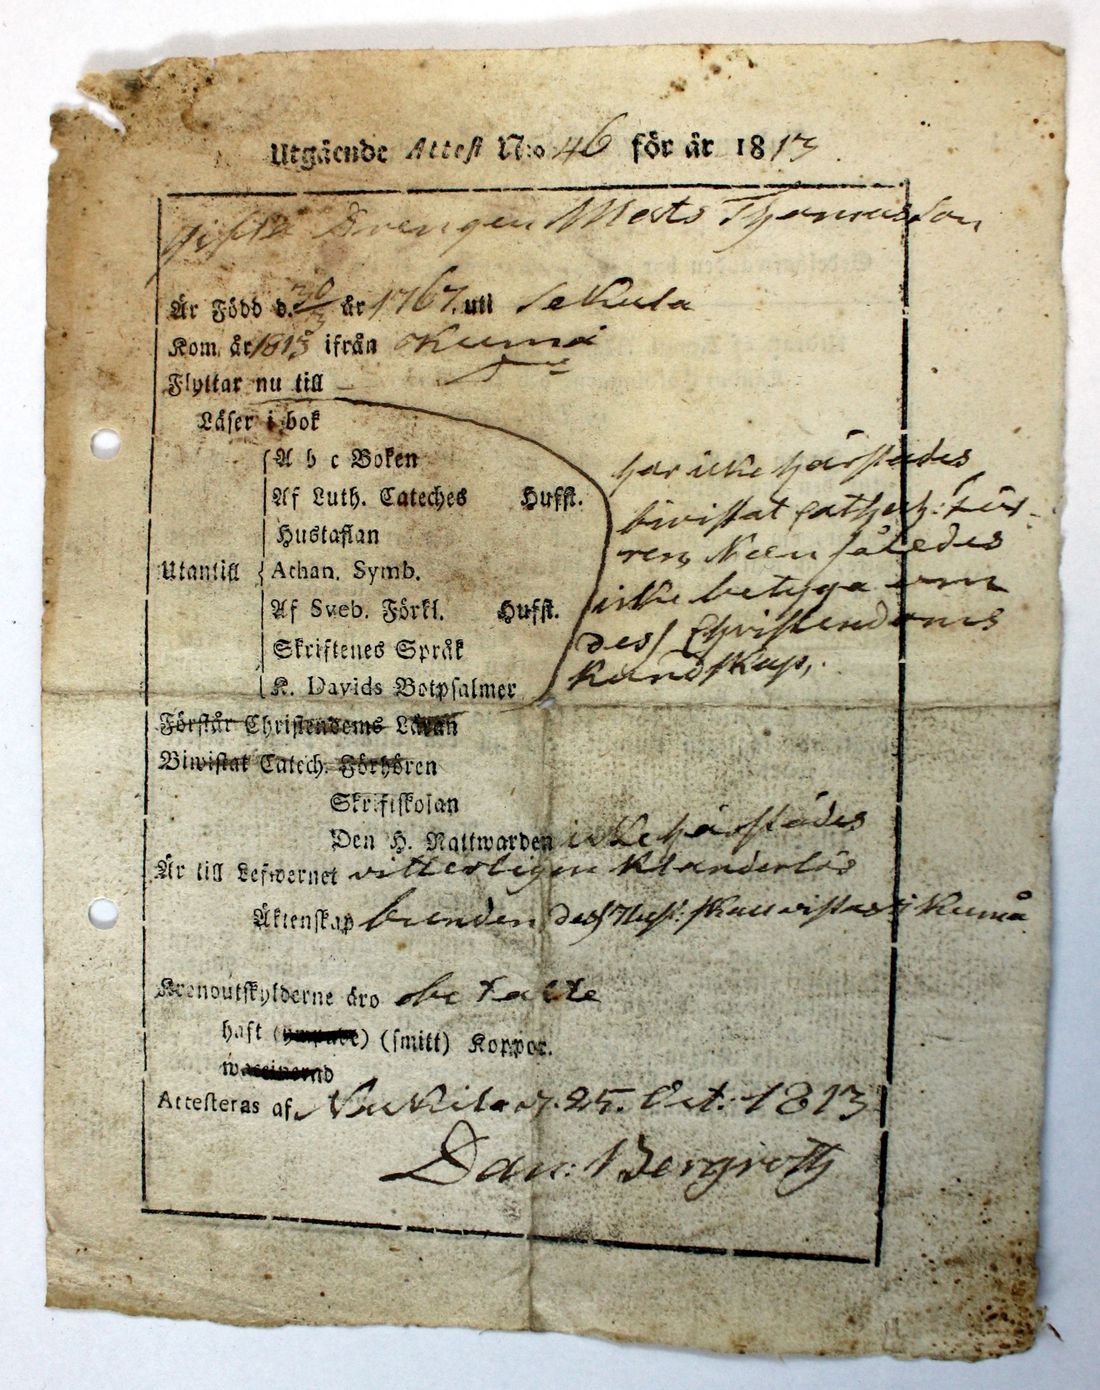 Utgående Attest N:o 46 för år 1813
gifta Drengen Mats Thomasson
Är Född d. 30/3 år 1767. uti Sekula
Kom år 1813 ifrån Kumå
Flyttar nu till
Läser i bok
A b c Boken
Af Luth. Cateches Husst.
Hustaflan
Utantill Athan. Symb.
Af Sveb. Förkl. Husst.
Skriftenes Språk
K. Davids Botpsalmer
har icke härstädes
bivistat Catech: för-
ren, kan således
icke betyga om
dess Christendoms
kundskap,.
Förstår Christendoms Läran
Biwistat Catech. Förhören
Skriftskolan
Den H. Nattwarden icke härstädes
Är till Lefwernet vitterligen klanderlös
Äktenskap bunden dess Hust: skall vistas i Kumå
Kronoutskylderne äro betalte
haft (ympade) (smitt) Koppor.
waccinerad
Attesteras af Nykila d. 25. Oct: 1813
Dan: Bergroth